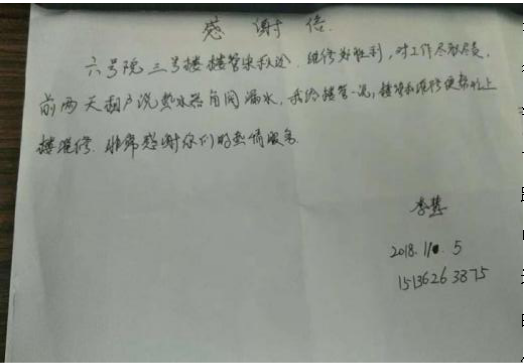 感谢信
六号院三号楼楼管宋秋玲、维修郑胜利，对工作尽职尽责，
前两天租户说热水器角阀漏水，我给楼管一说，楼管和维修便帮忙上
楼维修。非常感谢你们的热情服务
李慧
2018.11.5
15136263875